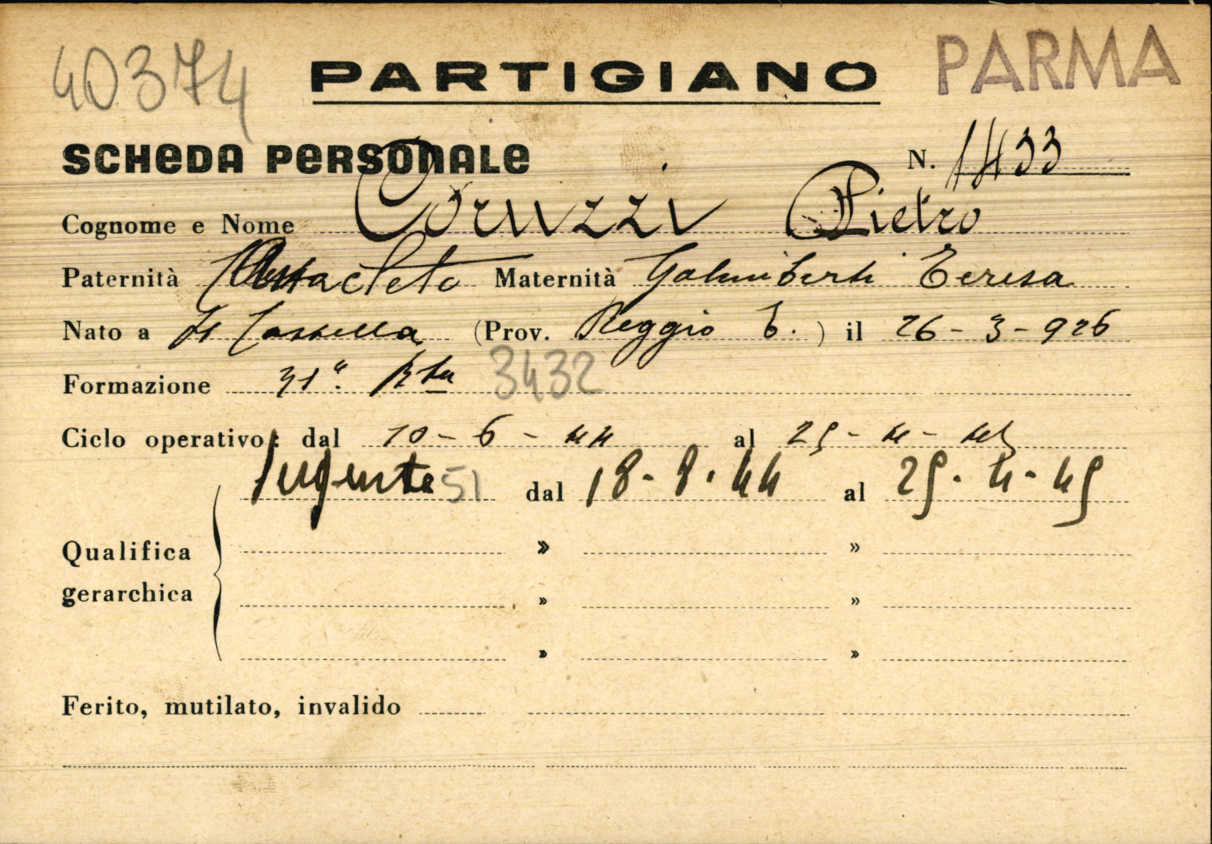 40374 PARTIGIANO PARMA
SCHEDA PERSONALE N. 1433
Cognome e Nome Coruzzi Pietro
Paternità Anacleto Maternità Galimberti Teresa
Nato a (Prov. Reggio E.) il 26-3-926
Formazione 31ª Bta 3432
Ciclo operativo: dal 10-6-44 al 25-4-45
Sergente 51 dal 18-8-44 al 25-4-45
Qualifica » »
gerarchica » »
» »
Ferito, mutilato, invalido